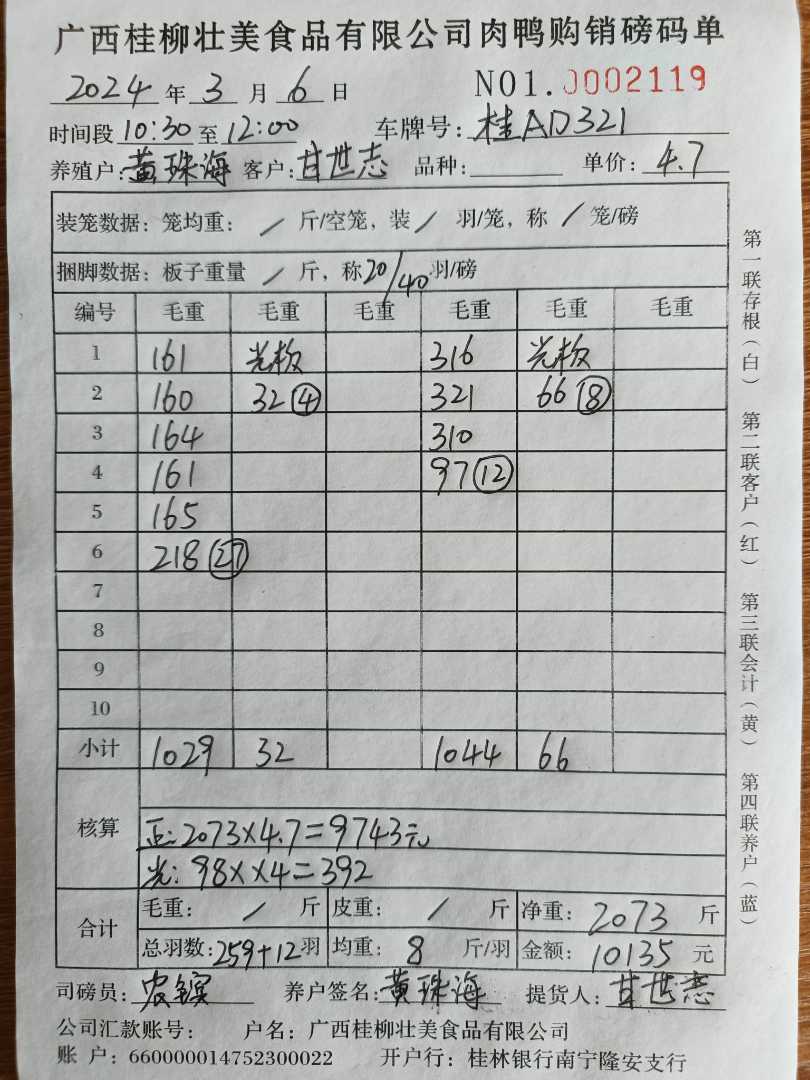 广西桂柳壮美食品有限公司肉鸭购销磅码单
2024 年 3 月 6 日 NO1. 0002119
时间段 10:30 至 12:00 车牌号: 桂AD321
养殖户: 黄珠海 客户: 甘世志 品种: 单价: 4.7
装笼数据: 笼均重: / 斤/空笼, 装 / 羽/笼, 称 / 笼/磅
捆脚数据: 板子重量 / 斤, 称 20/40 羽/磅
编号 毛重 毛重 毛重 毛重 毛重 毛重
1 161 光板 316 光板
2 160 32 ④ 321 66 ⑧
3 164 310
4 161 97 ⑫
5 165
6 218 ㉗
7
8
9
10
小计 1029 32 1044 66
核算
正: 2073×4.7=9743元
光: 98××4=392
合计
毛重: / 斤 皮重: / 斤 净重: 2073 斤
总羽数: 259+12 羽 均重: 8 斤/羽 金额: 10135 元
司磅员: 农 养户签名: 黄珠海 提货人: 甘世志
公司汇款账号: 户名: 广西桂柳壮美食品有限公司
账 户: 660000014752300022 开户行: 桂林银行南宁隆安支行
第一联存根(白) 第二联客户(红) 第三联会计(黄) 第四联养户(蓝)